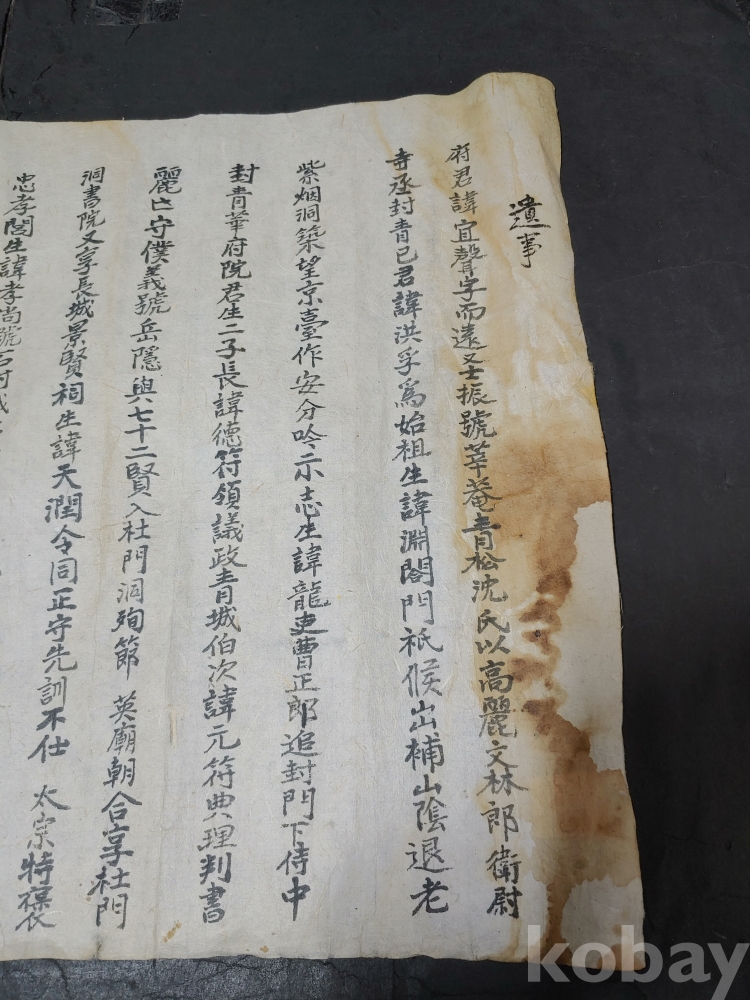 遺事
府君諱宜聲字而遠又士振號莘菴青松沈氏以高麗文林郎衛尉
寺丞封青已君諱洪孚爲始祖生諱淵閤門祇候出補山陰退老
紫烟洞築望京臺作安分吟示志生諱龍吏曹正郎追封門下侍中
封青華府院君生二子長諱德符領議政青城伯次諱元符典理判書
麗亡守僕義號岳隱與七十二賢入杜門洞殉節 英廟朝合享杜門
洞書院又享長城景賢祠生諱天潤令同正守先訓不仕 太宗特褒
忠孝閣生諱孝尚號
kobay